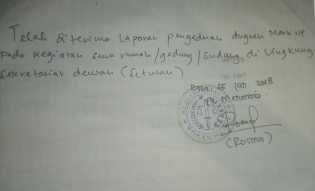 Telah diterima Laporan pengaduan dugaan Mark up
pada kegiatan sewa rumah/gedung/gudang, di Lingkung
Sekretariat dewan (Setwan)
2018
Yg Menerima
(Rosma)